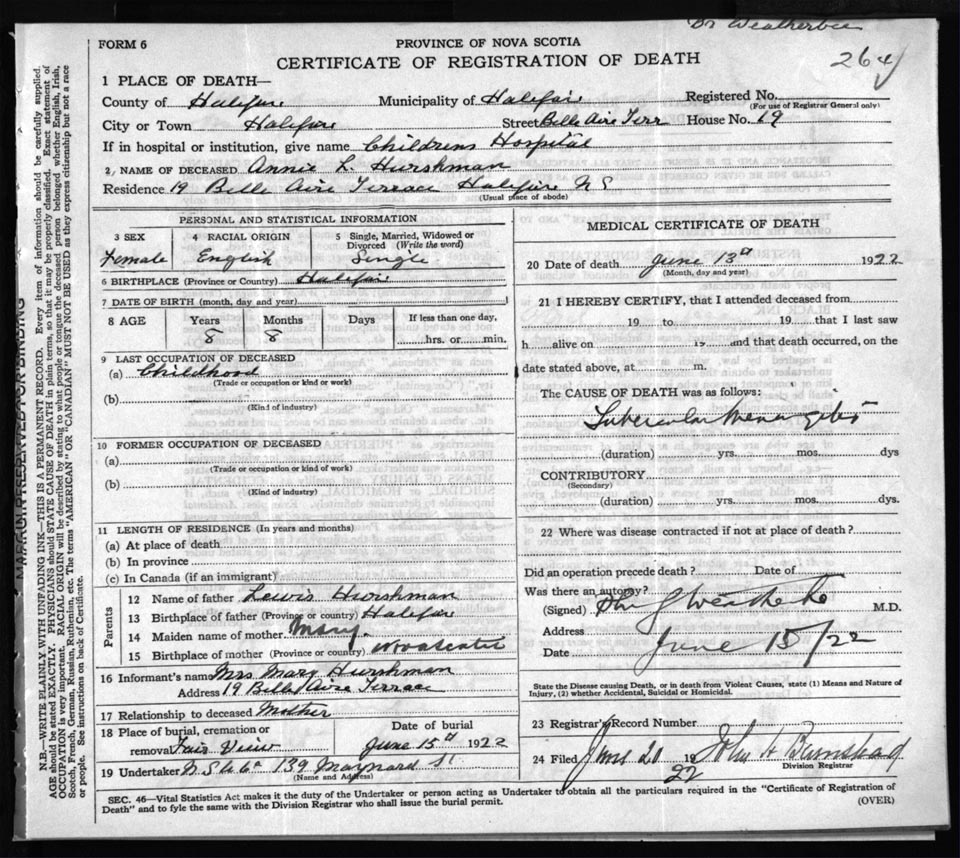 Dr Weatherbee
264
FORM 6
PROVINCE OF NOVA SCOTIA
CERTIFICATE OF REGISTRATION OF DEATH
1 PLACE OF DEATH—
County of Halifax Municipality of Halifax Registered No.
(For use of Registrar General only)
City or Town Halifax Street Belle Aire Terr House No. 19
If in hospital or institution, give name Childrens Hospital
2, NAME OF DECEASED Annie L. Hurshman
Residence 19 Belle Aire Terrace Halifax N S
(Usual place of abode)
PERSONAL AND STATISTICAL INFORMATION
3 SEX
Female
4 RACIAL ORIGIN
English
5 Single, Married, Widowed or
Divorced (Write the word)
Single
6 BIRTHPLACE (Province or Country) Halifax
7 DATE OF BIRTH (month, day and year)
8 AGE Years Months Days If less than one day,
8 8 hrs. or min.
9 LAST OCCUPATION OF DECEASED
(a) Childhood
(Trade or occupation or kind or work)
(b)
(Kind of industry)
10 FORMER OCCUPATION OF DECEASED
(a)
(Trade or occupation or kind or work)
(b)
(Kind of industry)
11 LENGTH OF RESIDENCE (In years and months)
(a) At place of death
(b) In province
(c) In Canada (if an immigrant)
Parents
12 Name of father Lewis Hurshman
13 Birthplace of father (Province or country) Halifax
14 Maiden name of mother Mary
15 Birthplace of mother (Province or country)
16 Informant's name Mrs Mary Hurshman
Address 19 Belle Aire Terrace
17 Relationship to deceased Mother
18 Place of burial, cremation or
removal Fair View
Date of burial
June 15th 1922
19 Undertaker N S U Co 139 Maynard St
(Name and Address)
MEDICAL CERTIFICATE OF DEATH
20 Date of death June 13th 1922
(Month, day and year)
21 I HEREBY CERTIFY, that I attended deceased from
19 to 19 that I last saw
h alive on 19 and that death occurred, on the
date stated above, at m.
The CAUSE OF DEATH was as follows:
Tubercular Meningitis
(duration) yrs. mos. dys
CONTRIBUTORY
(Secondary)
(duration) yrs. mos. dys.
22 Where was disease contracted if not at place of death?
Did an operation precede death? Date of
Was there an autopsy?
(Signed) M.D.
Address
Date June 15/22
State the Disease causing Death, or in death from Violent Causes, state (1) Means and Nature of
Injury, (2) whether Accidental, Suicidal or Homicidal.
23 Registrar's Record Number
24 Filed June 20 19 22 John H Barnstead
Division Registrar
SEC. 46—Vital Statistics Act makes it the duty of the Undertaker or person acting as Undertaker to obtain all the particulars required in the "Certificate of Registration of
Death" and to fyle the same with the Division Registrar who shall issue the burial permit.
(OVER)
MARGIN RESERVED FOR BINDING
N.B.—WRITE PLAINLY WITH UNFADING INK—THIS IS A PERMANENT RECORD. Every item of information should be carefully supplied.
AGE should be stated EXACTLY. PHYSICIANS should STATE CAUSE OF DEATH in plain terms, so that it may be properly classified. Exact statement of
OCCUPATION is very important. RACIAL ORIGIN will be described by stating to what people or tongue the deceased person belonged whether English, Irish,
Scotch, French, German, Russian, Ruthenian, etc. The terms "AMERICAN" OR "CANADIAN" MUST NOT BE USED as they express citizenship but not a race
or people. See instructions on back of Certificate.